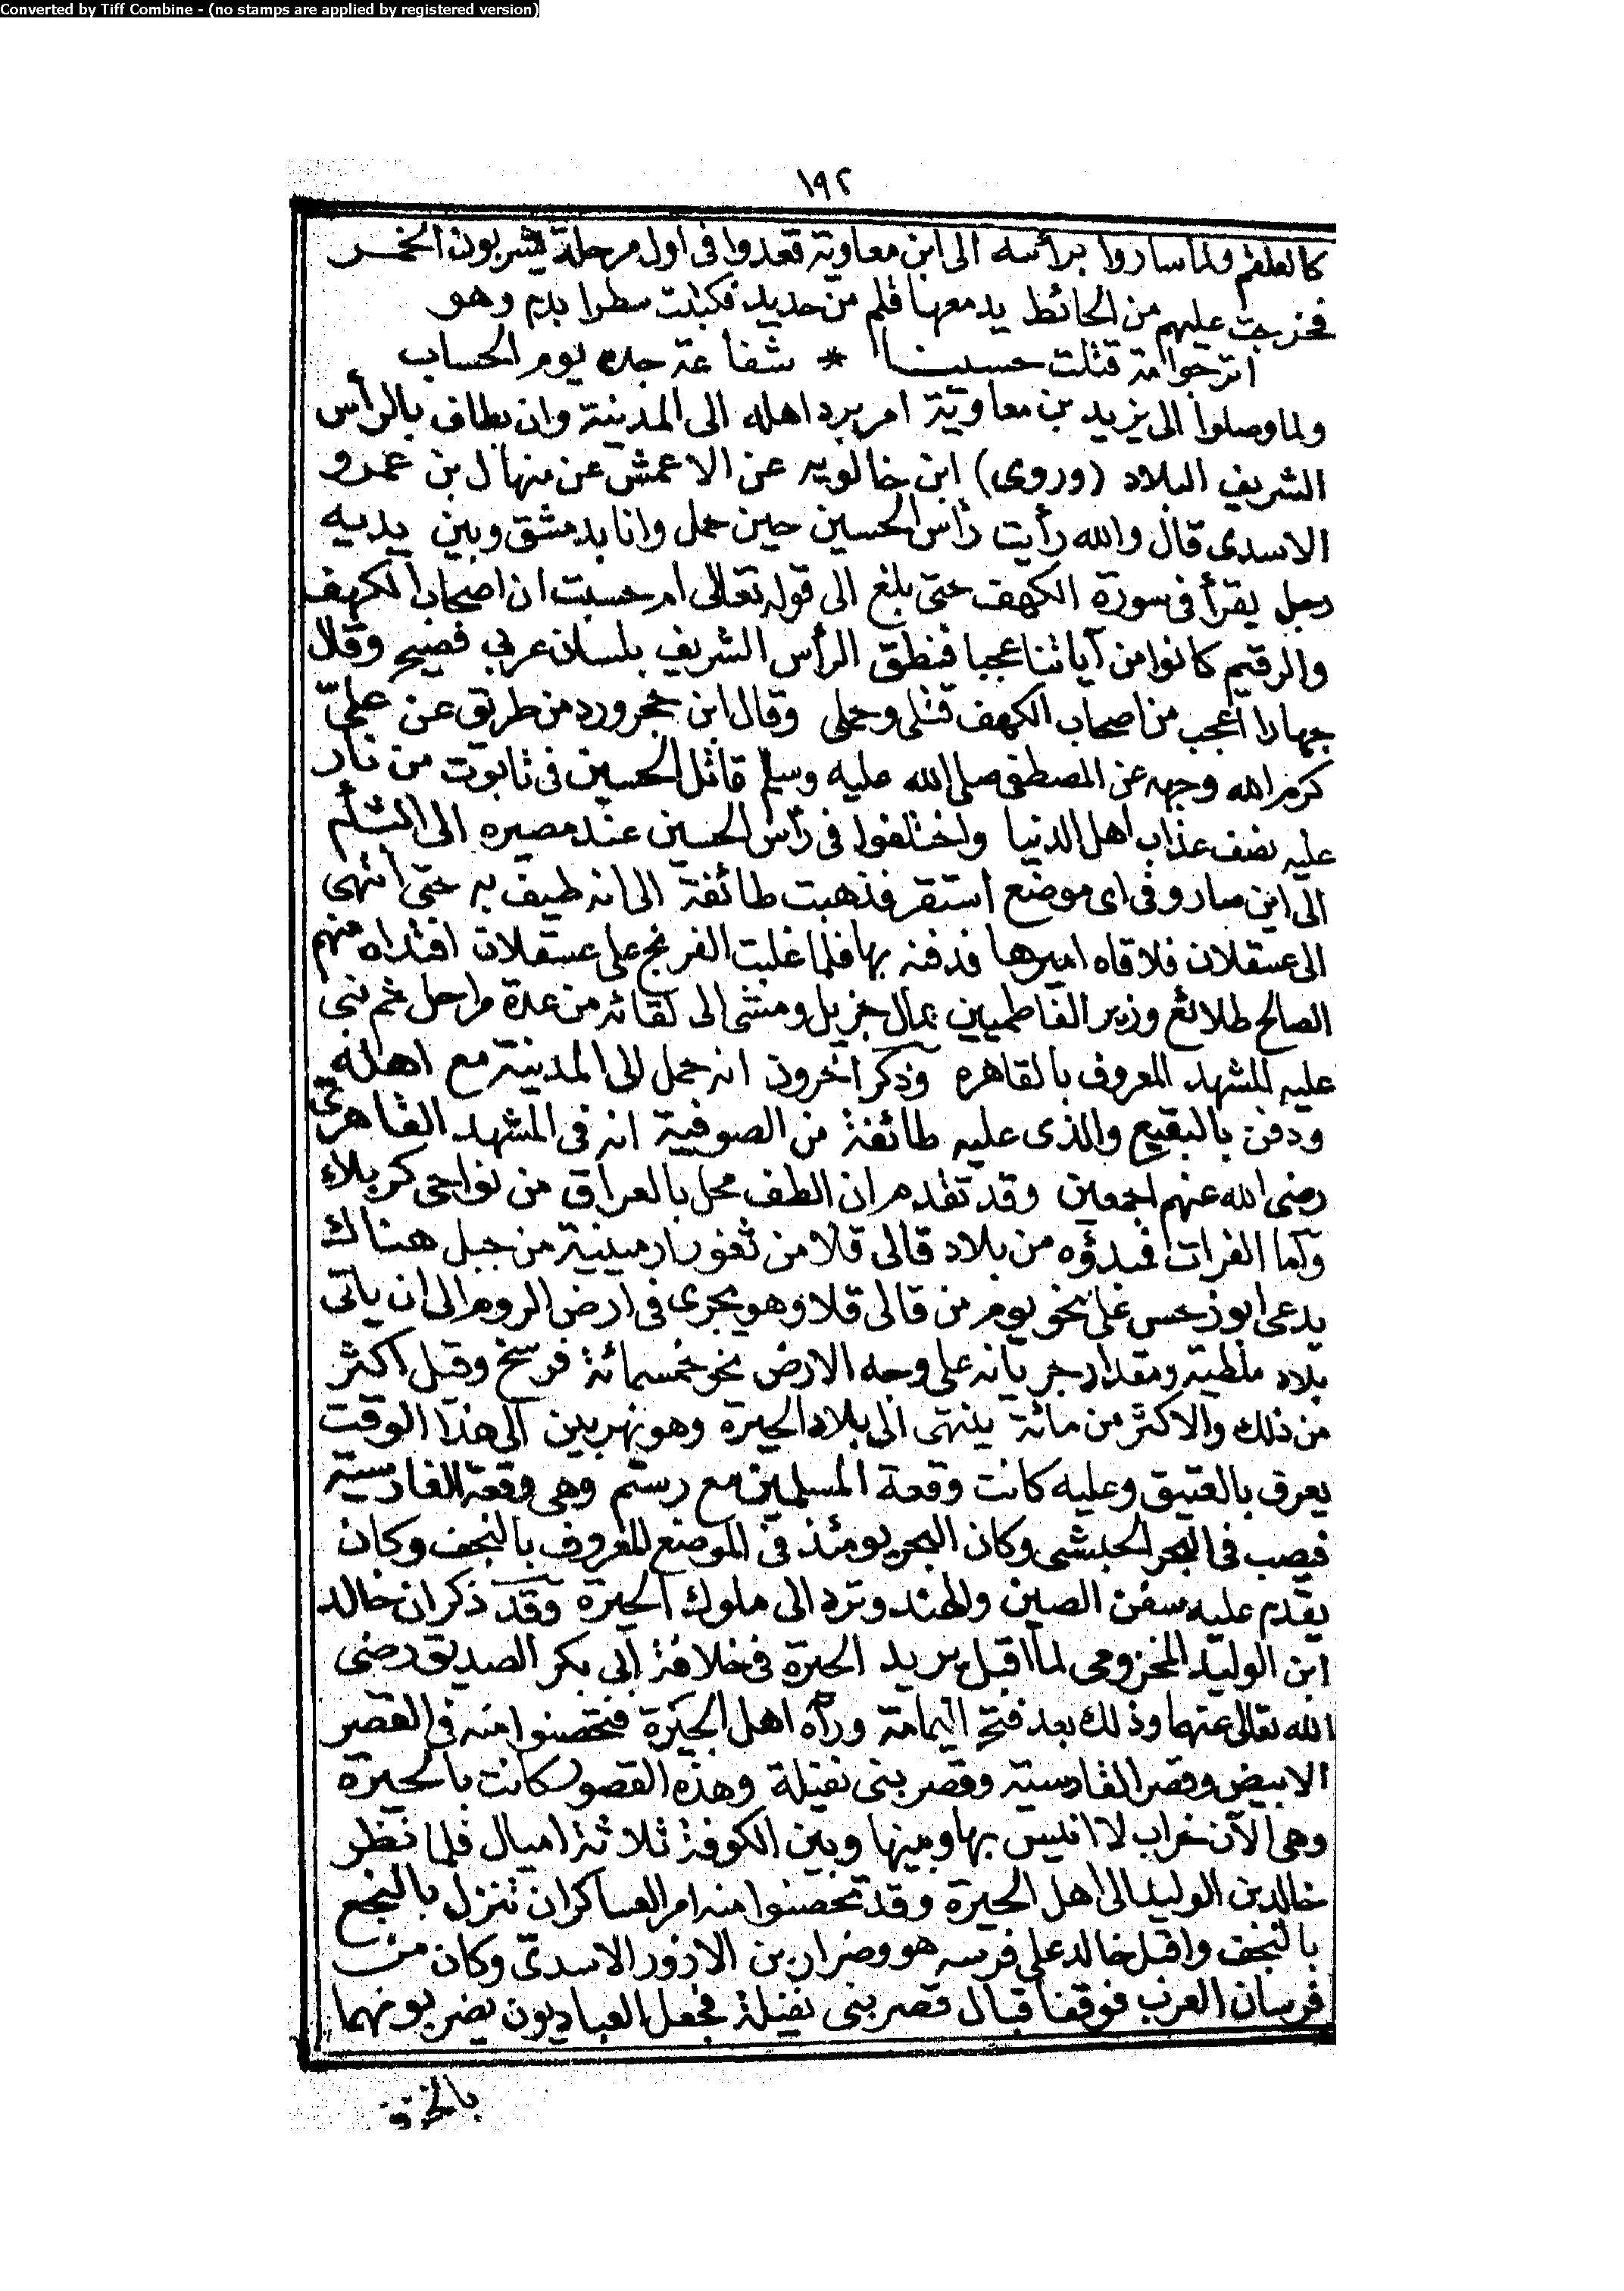 Converted by Tiff Combine - (no stamps are applied by registered version)
١٩٢
كالعلقم ولما ساروا برأسه الى ابن معاوية قعدوا فى اول مرحلة يشربون الخمر
فخرجت عليهم من الحائط يد معها قلم من حديد فكتبت سطرا بدم وهو
أترجوا امة قتلت حسينا * شفاعة جده يوم الحساب
ولما وصلوا الى يزيد بن معاوية امر برد اهله الى المدينة وان يطاف بالرأس
الشريف البلاد (وروى) ابن خالويه عن الاعمش عن منهال بن عمرو
الاسدى قال والله رأيت رأس الحسين حين حمل وانا بدمشق وبين يديه
رجل يقرأ فى سورة الكهف حتى بلغ الى قوله تعالى ام حسبت ان اصحاب الكهف
والرقيم كانوا من آياتنا عجبا فنطق الرأس الشريف بلسان عربي فصيح وقال
جهارا أعجب من اصحاب الكهف قتلى وحملى وقال ابن حجر ورد من طريق عن علىّ
كرم الله وجهه عن المصطفى صلى الله عليه وسلم قاتل الحسين فى تابوت من نار
عليه نصف عذاب اهل الدنيا واختلفوا فى رأس الحسين عند مصيره الى الشأم
الى اين صار وفى اى موضع استقر فذهبت طائفة الى انه طيف به حتى انتهى
الى عسقلان فلاقاه اميرها فدفنه بها فلما غلبت الفرنج على عسقلان افتداه منهم
الصالح طلائع وزير الفاطميين بمال جزيل ومشى الى لقائه من عدة مراحل ثم بنى
عليه المشهد المعروف بالقاهره وذكر آخرون انه حمل الى المدينة مع اهله
ودفن بالبقيع والذى عليه طائفة من الصوفية انه فى المشهد القاهرىّ
رضى الله عنهم اجمعين وقد تقدم ان الطف محل بالعراق من نواحى كربلاء
وأما الفرات فمبدؤه من بلاد قالى قلا من ثغور ارمينية من جبل هناك
يدعى ابوزحس على نحو يوم من قالى قلا وهو يجرى فى ارض الروم الى ان يأتى
بلاد ملطية ومقدار جريانه على وجه الارض نحو خمسمائة فرسخ وقيل اكثر
من ذلك والاكثر من مائة ينتهى الى بلاد الحيرة وهو نهر بين الى هذا الوقت
يعرف بالعتيق وعليه كانت وقعة المسلمين مع رستم وهى وقعة القادسية
فيصب فى البحر الحبشى وكان البحر يومئذ فى الموضع المعروف بالنجف وكان
يقدم عليه سفن الصين والهند وترد الى ملوك الحيرة وقد ذكر ان خالد
ابن الوليد المخزومى لما اقبل يريد الحيرة فى خلافة ابى بكر الصديق رضى
الله تعالى عنهما وذلك بعد فتح اليمامة ورآه اهل الحيرة فتحصنوا منه فى القصر
الابيض وقصر القادسية وقصر بنى نفيلة وهذه القصور كانت بالحيرة
وهى الآن خراب لا انيس بها وبينها وبين الكوفة ثلاثة اميال فلما نظر
خالد بن الوليد الى اهل الحيرة وقد تحصنوا منه امر العساكر ان تنزل بالنجع
بالنجف واقبل خالد على فرسه هو وضرار بن الازور الاسدىّ وكان من
فرسان العرب فوقفا قبال قصر بنى نفيلة فجعل العباديون يضربونهما
بالخزف